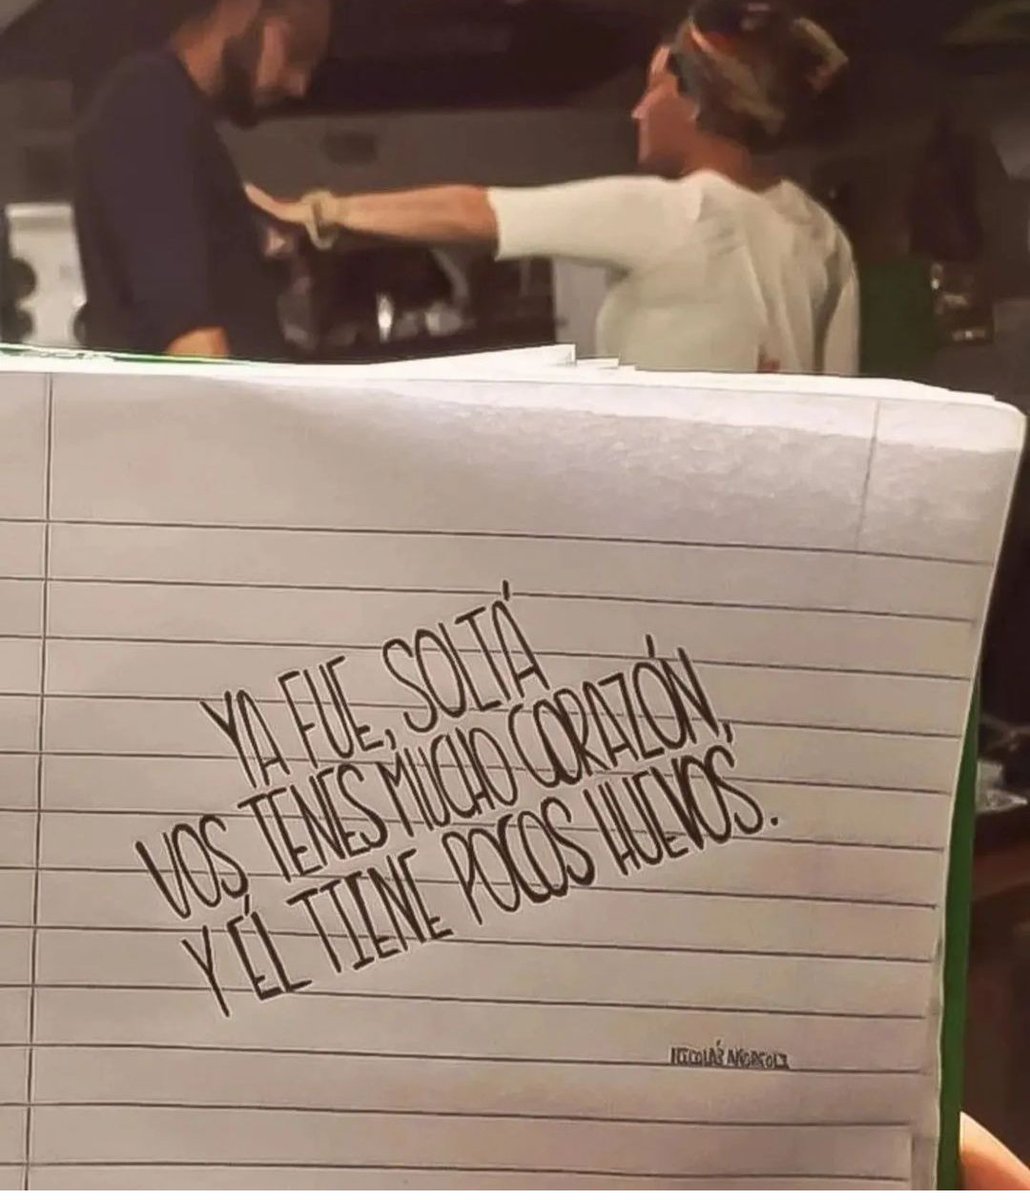 YA FUE, SOLTÁ
VOS TENES MUCHO CORAZÓN,
Y ÉL TIENE POCOS HUEVOS.